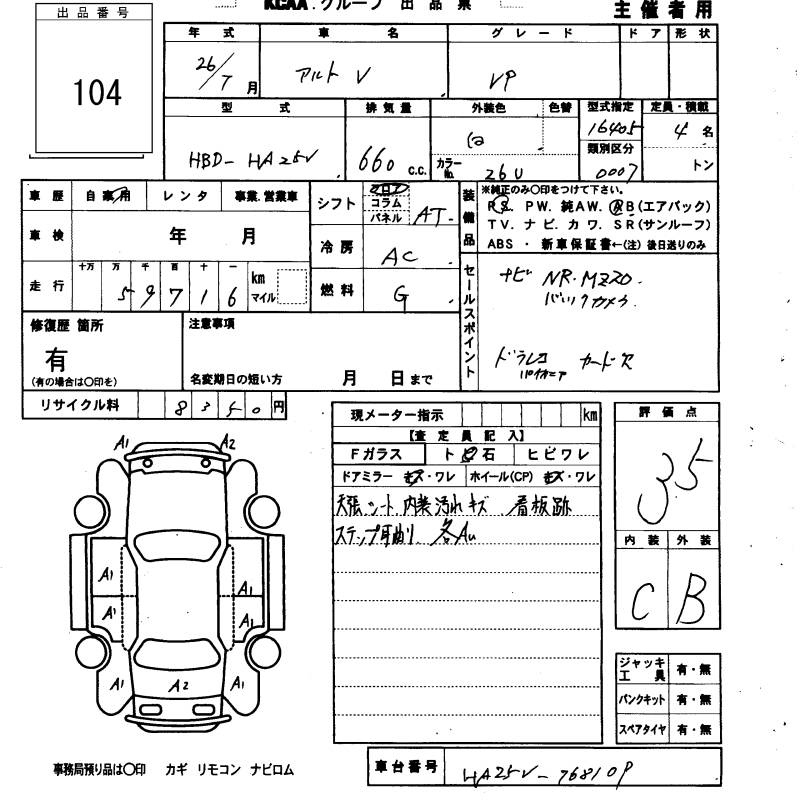 出品番号
104
KCAA.グループ 出品票
主催者用
年式 車名 グレード ドア 形状
26/7月 アルト V VP
型式 排気量 外装色 色替 型式指定 定員・積載
HBD-HA25V 660 c.c. 白 16405 4名
カラーNo. 26U 類別区分 0007 トン
車歴 自家用 レンタ 事業.営業車
車検 年 月
走行 十万 万 千 百 十 一
59716 km マイル
シフト フロア コラム パネル AT
冷房 AC
燃料 G
装備品
※純正のみ〇印をつけて下さい。
PS. PW. 純AW. AB(エアバック)
TV. ナビ. カワ. SR(サンルーフ)
ABS・新車保証書←(注)後日送りのみ
セールスポイント
ナビ NR-MZ20.
バックカメラ
ドラレコ カードR
パイオニア
修復歴 箇所
有
(有の場合は〇印を)
注意事項
名変期日の短い方 月 日まで
リサイクル料 8350円
現メーター指示 km
【査定員記入】
Fガラス トビ石 ヒビワレ
ドアミラー キズ・ワレ ホイール(CP) キズ・ワレ
天張.シート.内装汚れキズ 看板跡
ステップ耳曲り 各AU
評価点
3.5
内装 外装
C B
A1 A2
A1 A1
A1 A1
A1 A2 A1
ジャッキ工具 有・無
パンクキット 有・無
スペアタイヤ 有・無
事務局預り品は〇印 カギ リモコン ナビロム
車台番号 HA25V-768109